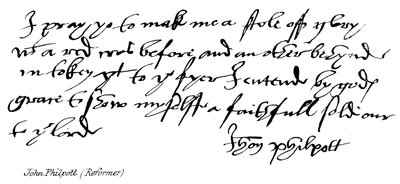 I pray yo to make me a stole off
wt a red cros before and an other behynde
in token yt to ye fyer I entende by gods
grace to show myselffe a faithfull soldiour
to ye lorde
Jhon philpott
John Philpott (Reformer)